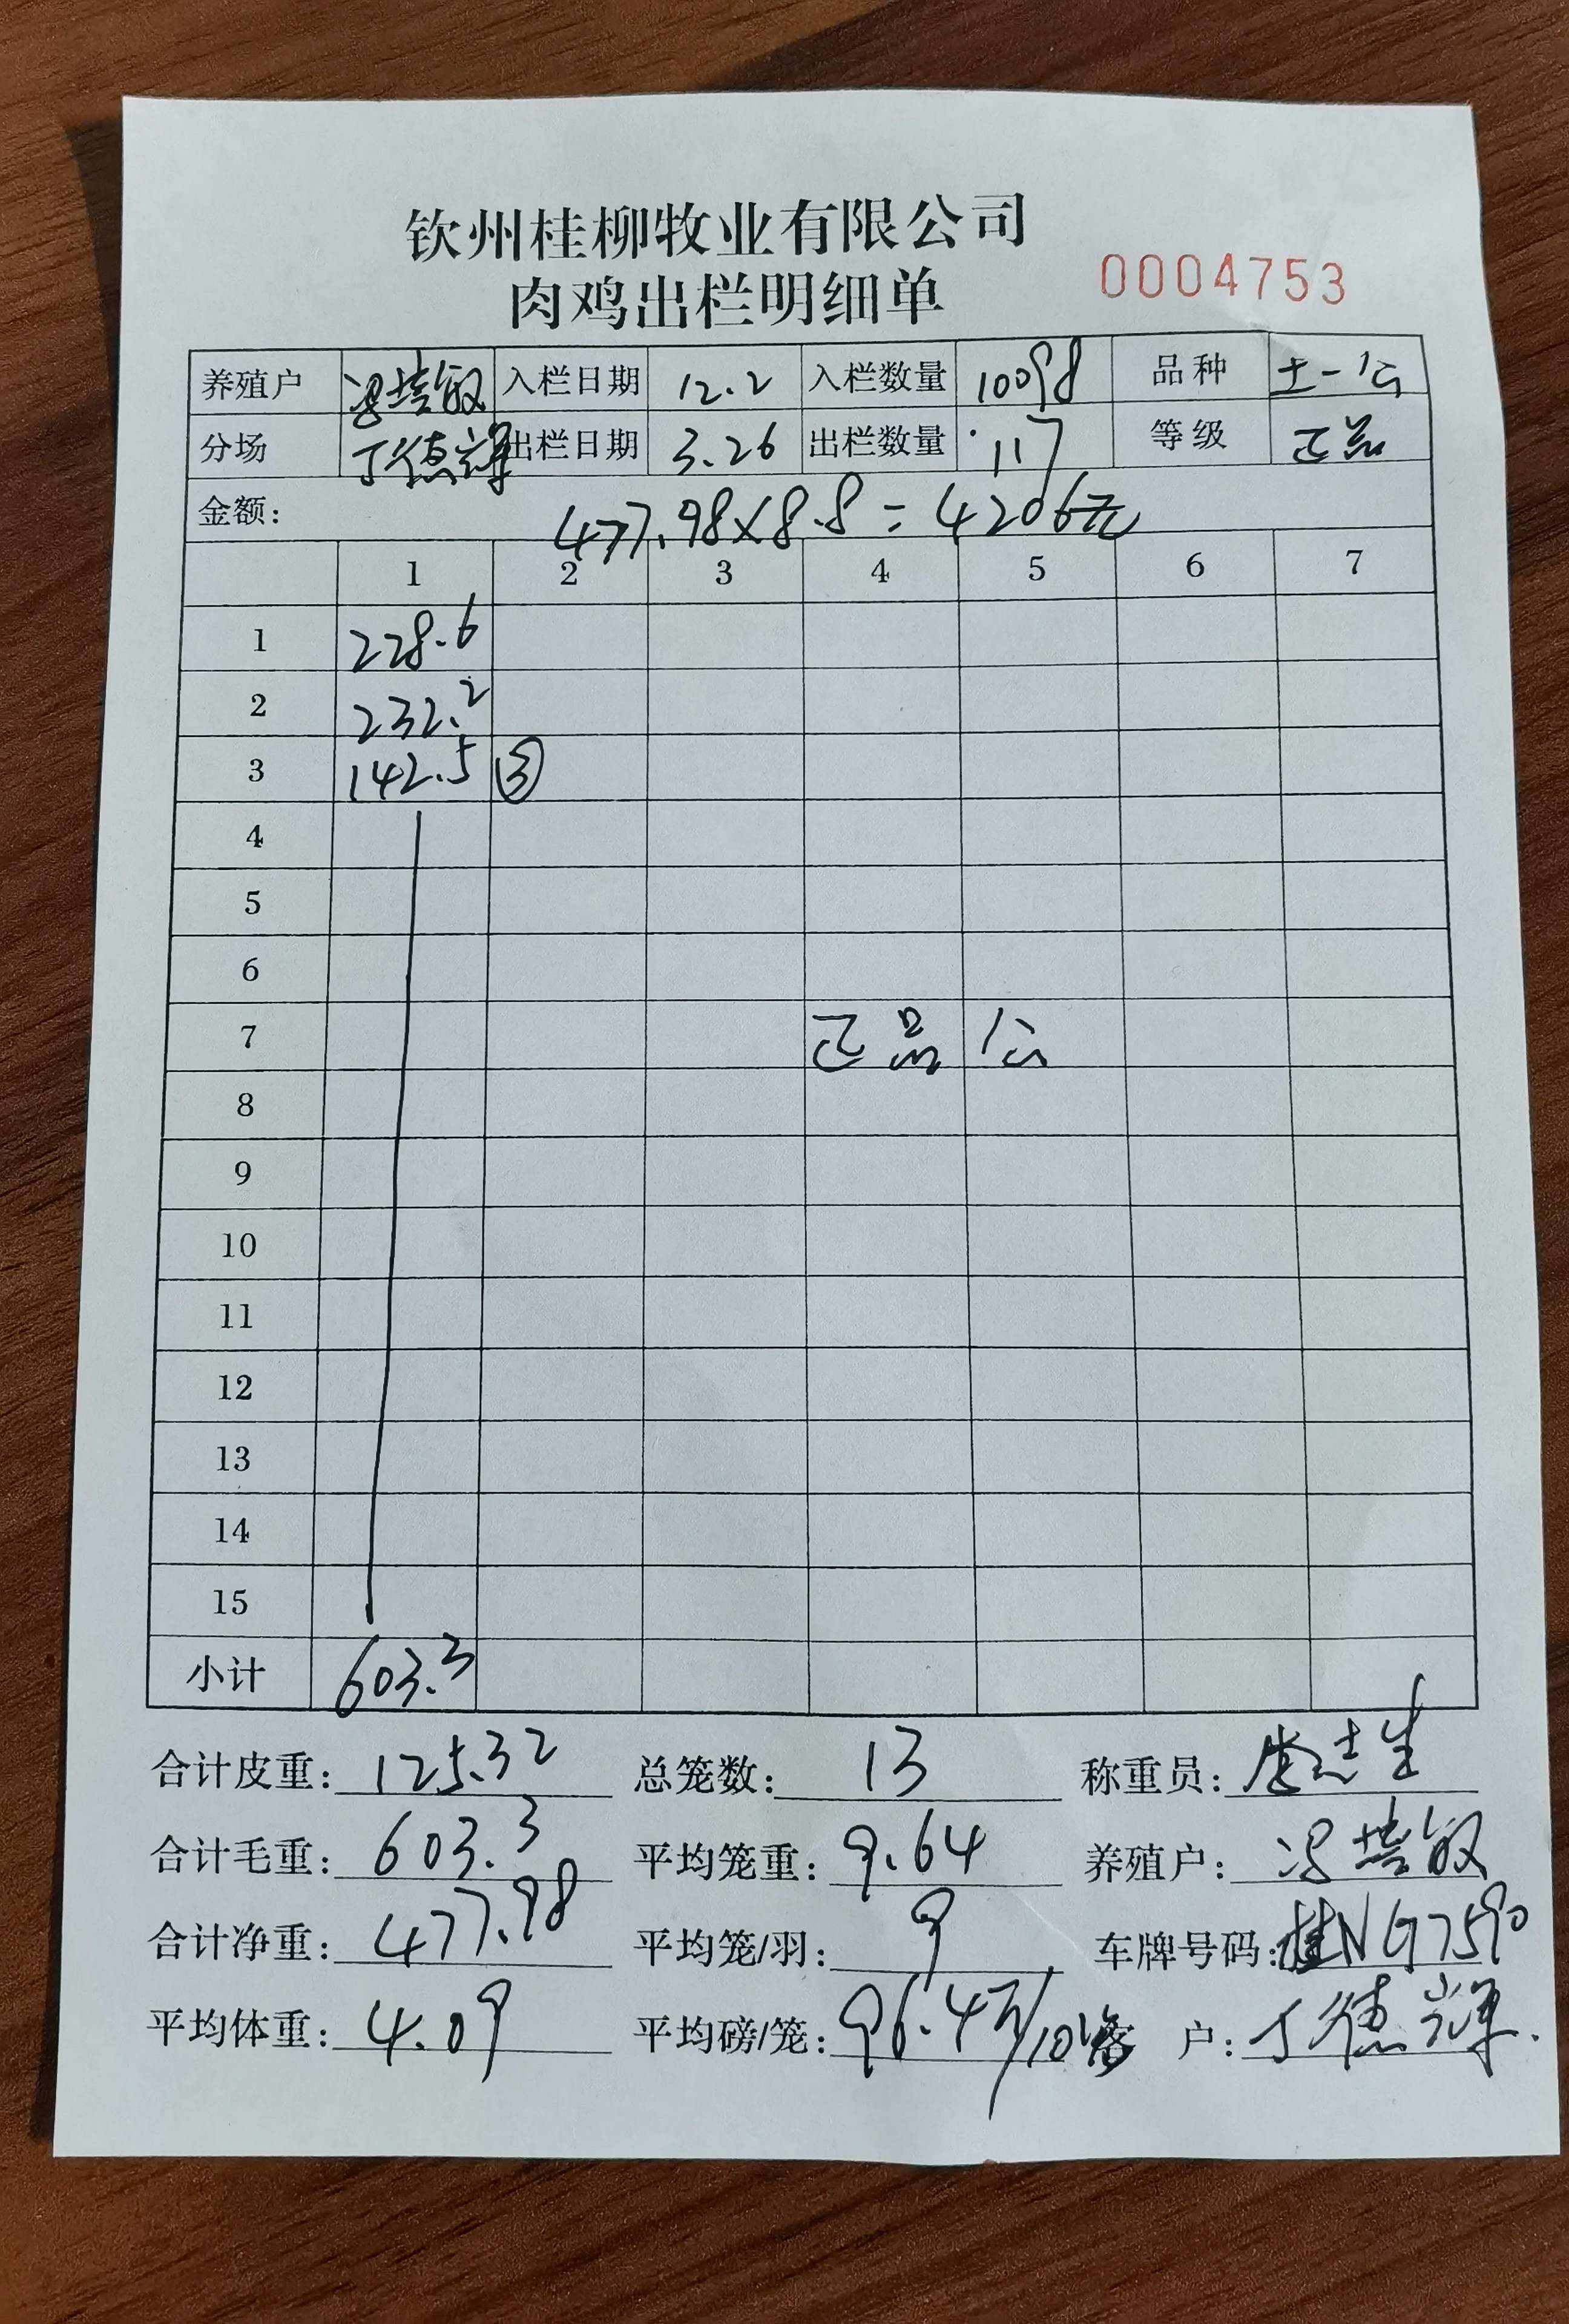 钦州桂柳牧业有限公司
肉鸡出栏明细单
0004753
养殖户 冯培敏 入栏日期 12.2 入栏数量 10098 品种 土一公
分场 丁德辉 出栏日期 3.26 出栏数量 117 等级 正品
金额: 477.98×8.8=4206元
1 2 3 4 5 6 7
1 228.6
2 232.2
3 142.5 ③
4
5
6
7 正品 公
8
9
10
11
12
13
14
15
小计 603.3
合计皮重: 125.32 总笼数: 13 称重员: 志生
合计毛重: 603.3 平均笼重: 9.64 养殖户: 冯培敏
合计净重: 477.98 平均笼/羽: 9 车牌号码: 桂NG7590
平均体重: 4.09 平均磅/笼: 96.4斤/10笼 客户: 丁德辉